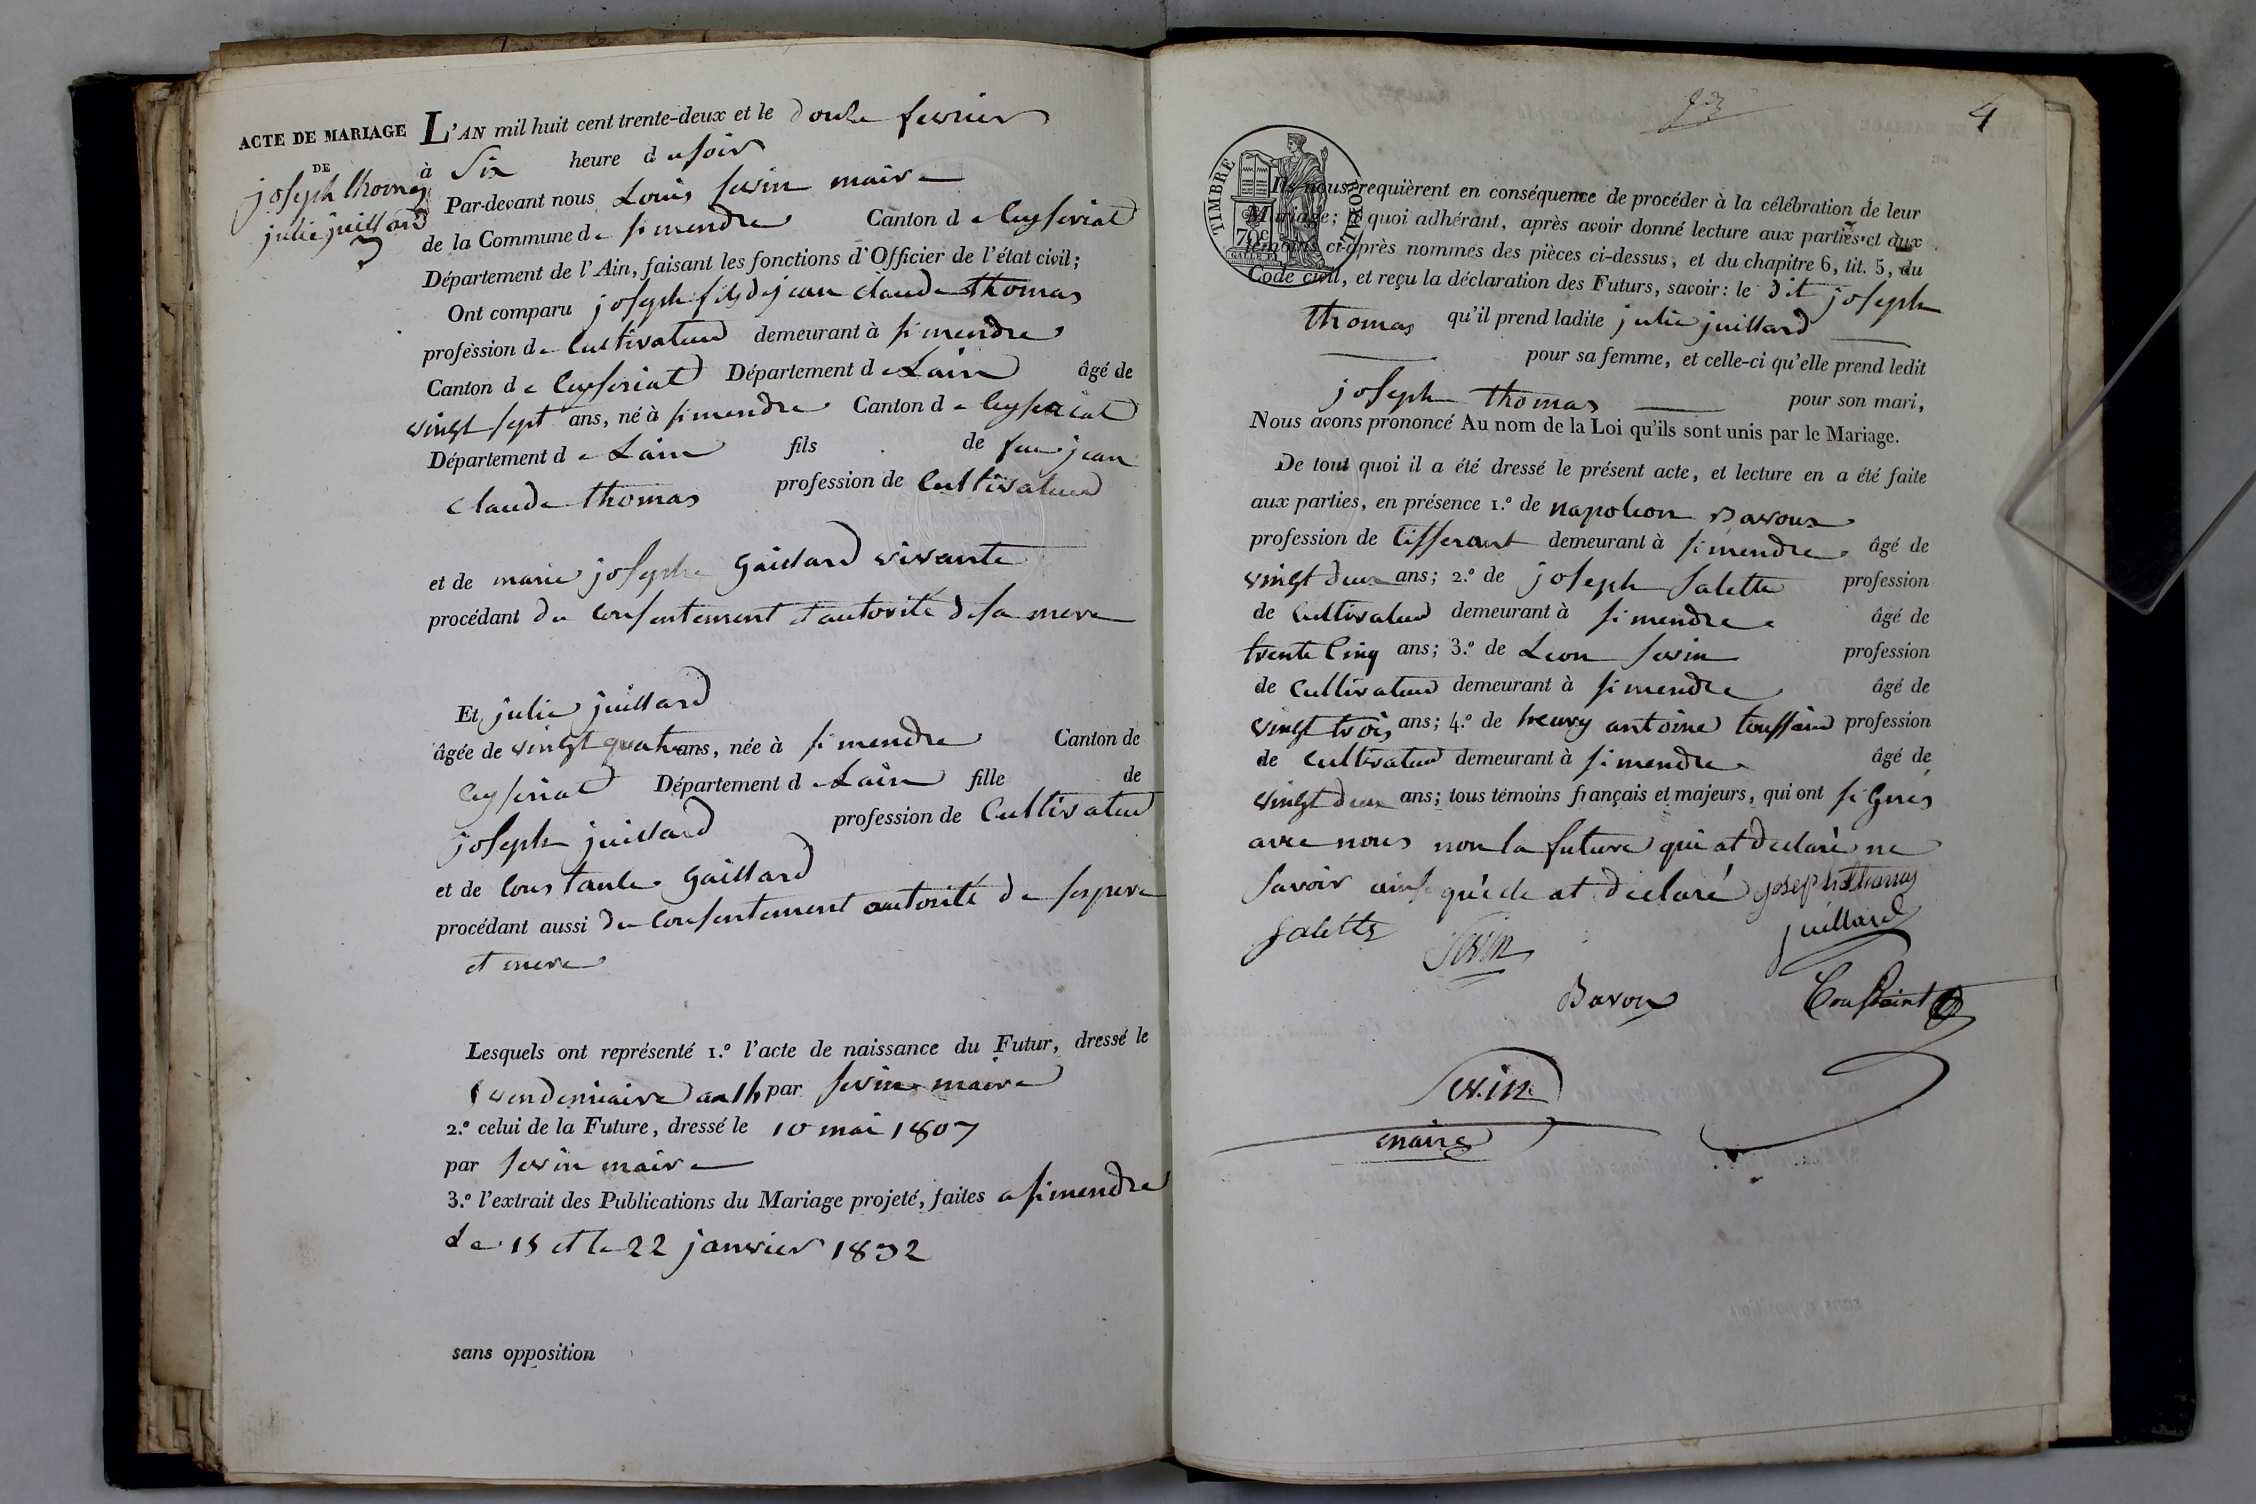 ACTE DE MARIAGE
DE
joseph thomas
julie juillard
L'AN mil huit cent trente-deux et le douze fevrier
à Six heure du soir
Par-devant nous Louis sevin maire
de la Commune de simendre Canton de Ceyseriat
Département de l'Ain, faisant les fonctions d'Officier de l'état civil;
Ont comparu joseph fils de jean claude thomas
profession de Cultivateur demeurant à simendre
Canton de Ceyseriat Département de Lain âgé de
vingt sept ans, né à simendre Canton de Ceyseriat
Département de Lain fils de feu jean
claude thomas profession de Cultivateur
et de marie josephe Gaillard vivante
procédant du consentement et autorité de sa mere
Et julie juillard
âgée de vingt quatre ans, née à simendre Canton de
Ceyseriat Département de Lain fille de
joseph juillard profession de Cultivateur
et de Constance Gaillard
procédant aussi du Consentement autorité de ses pere
et mere
Lesquels ont représenté 1.º l'acte de naissance du Futur, dressé le
vendemiaire an 14 par sevin maire
2.º celui de la Future, dressé le 10 mai 1807
par sevin maire
3.º l'extrait des Publications du Mariage projeté, faites a simendre
Le 15 et le 22 janvier 1832
sans opposition
4
TIMBRE ROYAL
70c
Ils nous requièrent en conséquence de procéder à la célébration de leur
Mariage; à quoi adhérant, après avoir donné lecture aux parties et aux
témoins ci-après nommés des pièces ci-dessus, et du chapitre 6, tit. 5, du
Code civil, et reçu la déclaration des Futurs, savoir: le dit joseph
thomas qu'il prend ladite julie juillard
pour sa femme, et celle-ci qu'elle prend ledit
joseph thomas pour son mari,
Nous avons prononcé Au nom de la Loi qu'ils sont unis par le Mariage.
De tout quoi il a été dressé le présent acte, et lecture en a été faite
aux parties, en présence 1.º de napoleon Davoux
profession de tisserant demeurant à simendre âgé de
vingt deux ans; 2.º de joseph salette profession
de Cultivateur demeurant à simendre âgé de
trente Cinq ans; 3.º de Leon sevin profession
de Cultivateur demeurant à simendre âgé de
vingt trois ans; 4.º de henry antoine toussaint profession
de Cultivateur demeurant à simendre âgé de
vingt deux ans; tous témoins français et majeurs, qui ont signés
avec nous non la future qui at declaré ne
savoir ainsi at declaré joseph thomas
salette Sevin juillard
Davoux Toussaint
Sevin
maire